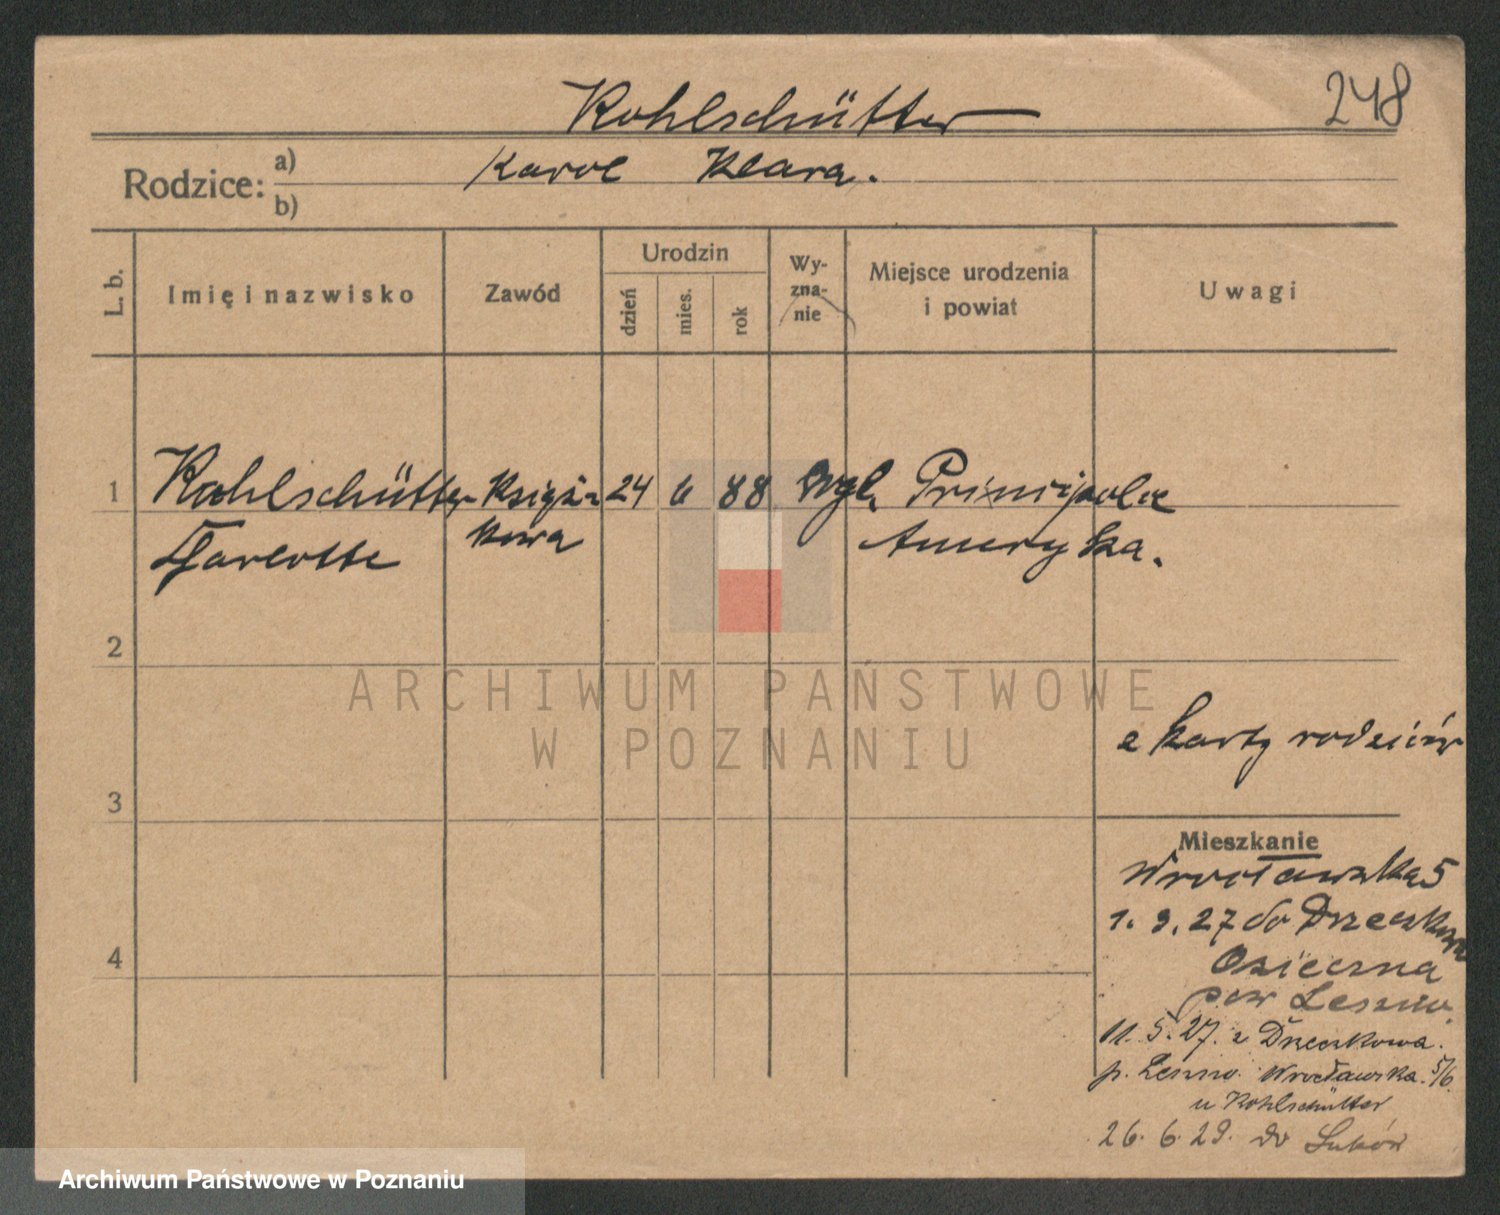 248
Kohlschütter
Rodzice: a) Karol Klara.
b)
L. b.
Imię i nazwisko
Zawód
Urodzin
dzień
mies.
rok
Wy-
zna-
nie
Miejsce urodzenia
i powiat
Uwagi
1 Kohlschütter Książ- 24 6 88 Prinzipolie
kowa Ameryka.
2
z karty rodziców
3
Mieszkanie
Wrocławska 5
1. 9. 27 do Drzeczkowa
Osieczna
4
pow Leszno.
11. 5. 27. z Drzeczkowa.
p. Leszno. Wrocławska. 5/6.
u Kohlschütter
26. 6. 29. do
ARCHIWUM PAŃSTWOWE
W POZNANIU
Archiwum Państwowe w Poznaniu